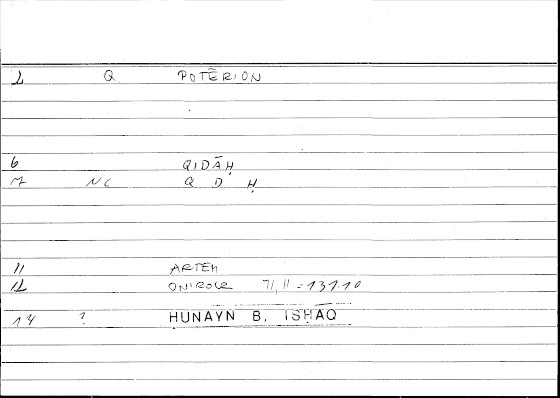 1 Q POTĒRION
6 QIDĀḤ
7 NC Q D Ḥ
11 ARTEM
12 ONIROCR 71,11 = 131.10
14 ? ḤUNAYN B. ISḤĀQ